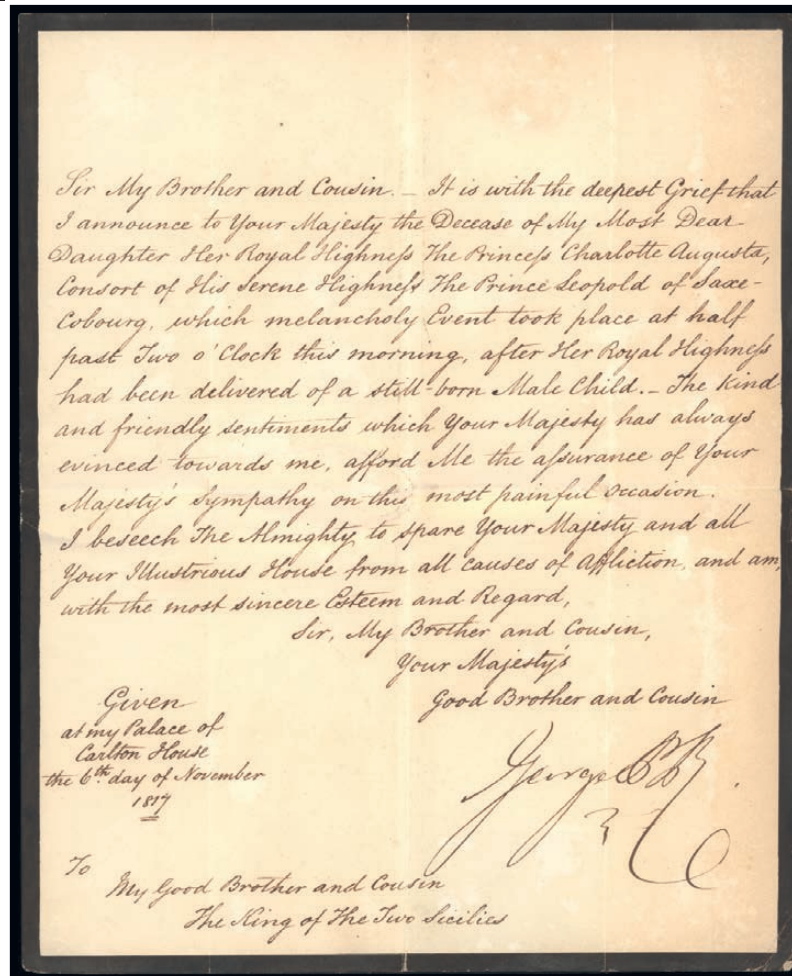 Sir My Brother and Cousin. _ It is with the deepest Grief that
I announce to Your Majesty the Decease of My Most Dear
Daughter Her Royal Highneſs The Princeſs Charlotte Augusta,
Consort of His Serene Highneſs The Prince Leopold of Saxe-
Cobourg, which melancholy Event took place at half
past Two o'Clock this morning, after Her Royal Highneſs
had been delivered of a still-born Male Child. _ The kind
and friendly sentiments which Your Majesty has always
evinced towards me, afford Me the aſsurance of Your
Majesty's Sympathy on this most painful occasion.
I beseech The Almighty to spare Your Majesty and all
Your Illustrious House from all causes of Affliction, and am,
with the most sincere Esteem and Regard,
Sir, My Brother and Cousin,
Your Majesty's
Good Brother and Cousin
George P R
Given
at my Palace of
Carlton House
the 6th. day of November
1817
To
My Good Brother and Cousin
The King of The Two Sicilies